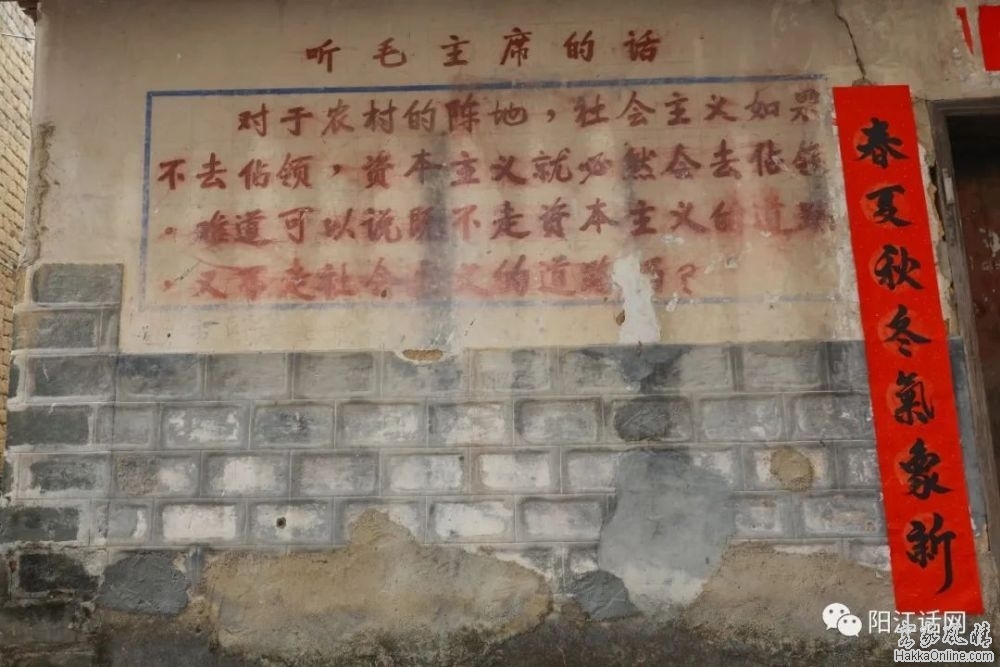 听毛主席的话
对于农村的阵地，社会主义如果
不去佔领，资本主义就必然会去佔领
。难道可以说既不走资本主义的道路
，又不走社会主义的道路吗？
春夏秋冬氣象新
阳江话网
客家風情
HakkaOnline.com